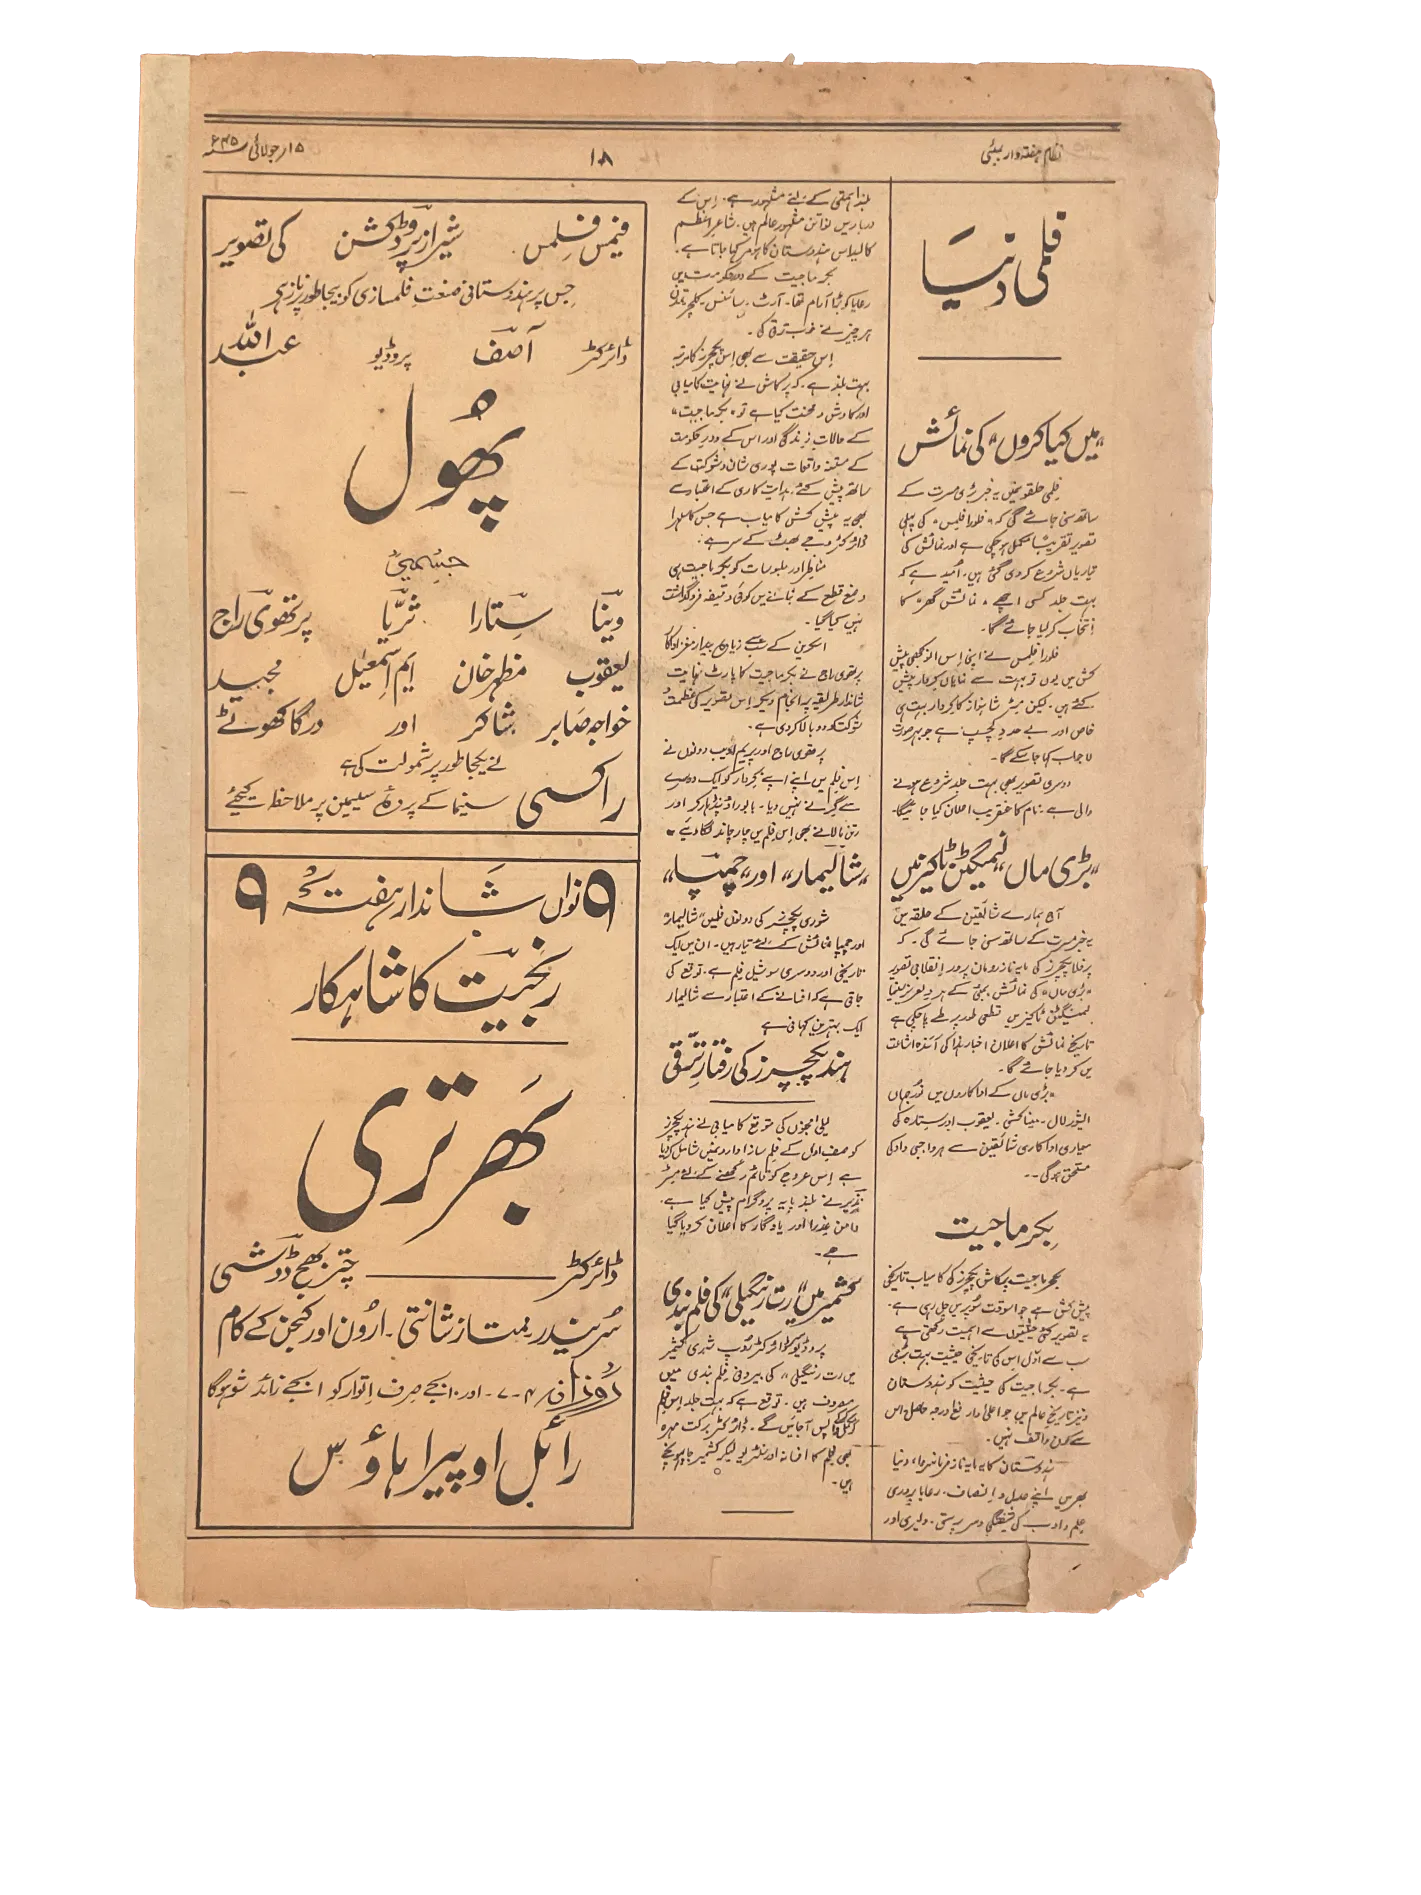 نظام ہفتہ وار بمبئی
۱۸
۱۵ر جولائی ۴۵ء
فلمی دنیا
"میں کیا کروں" کی نمائش
فلمی حلقوں میں یہ خبر بڑی مسرت کے
ساتھ سنی جائے گی کہ "فلورا فلمس" کی پہلی
تصویر تقریباً مکمل ہو چکی ہے اور نمائش کی
تیاریاں شروع کر دی گئی ہیں۔ اُمید ہے کہ
بہت جلد کسی اچھے "نمائش گھر" کا
انتخاب کر لیا جائے گا۔
فلورا فلمس نے اپنی اس انوکھی پیش
کش میں یوں تو بہت سے نمایاں کردار پیش
کئے ہیں۔ لیکن مسٹر شاہنواز کا کردار بہت ہی
خاص اور بے حد دلچسپ ہے جو بہر صورت
لاجواب کہا جا سکے گا۔
دوسری تصویر بھی بہت جلد شروع ہونے
والی ہے۔ نام کا عنقریب اعلان کیا جائیگا۔
"بڑی ماں" لیمنگٹن ٹاکیز میں
آج ہمارے شائقین کے حلقہ میں
یہ خبر مسرت کے ساتھ سنی جائے گی۔ کہ
پرفلا پکچرز کی مایہ ناز رومان پرور انقلابی تصویر
"بڑی ماں" کی نمائش، بمبئی کے ہر دلعزیز سینما
لیمنگٹن ٹاکیز میں قطعی طور پر طے پا چکی ہے
تاریخِ نمائش کا اعلان اخبار ہٰذا کی آئندہ اشاعت
میں کر دیا جائے گا۔
"بڑی ماں کے اداکاروں میں نورجہاں
ایشور لال۔ میناکشی۔ یعقوب اور ستارہ کی
معیاری اداکاری شائقین سے ہر واجبی داد کی
مستحق ہوگی۔۔
بکرماجیت
بکرماجیت پرکاش پکچرز کی کامیاب تاریخی
پیش کش ہے جو اسوقت سُوپر میں چل رہی ہے۔
یہ تصویر کئی حیثیتوں سے اہمیت رکھتی ہے
سب سے اوّل اس کی تاریخی حیثیت بہت بڑی
ہے۔ بکرماجیت کی حیثیت کو ہندوستان
نیز تاریخِ عالم میں جو اعلیٰ وارفع درجہ حاصل ہے اس
سے کون واقف نہیں۔
ہندوستان کا یہ مایہ ناز فرمانروا، دنیا
بھر میں اپنے عدل و انصاف۔ رعایا پروری
علم و ادب کی شیفتگی و سرپرستی۔ دلیری اور
بلند ہمتی کے لئے مشہور ہے۔ اس کے
دربار میں نورتن مشہورِ عالم ہیں۔ شاعرِ اعظم
کالیداس ہندوستان کا ہومر کہا جاتا ہے۔
بکرماجیت کے دورِ حکومت میں
رعایا کو بڑا آرام تھا۔ آرٹ۔ سائنس۔ کلچر تمدن
ہر چیز نے خوب ترقی کی۔
اس حقیقت سے بھی اِس پکچرز کا مرتبہ
بہت بلند ہے۔ کہ پرکاش نے نہایت کامیابی
اور کاوش و محنت کیا ہے تو "بکرماجیت"
کے حالاتِ زندگی اور اس کے دورِ حکومت
کے مستند واقعات پوری شان و شوکت کے
ساتھ پیش کئے۔ ہدایت کاری کے اعتبار سے
بھی یہ پیش کش کامیاب ہے جس کا سہرا
ڈائرکٹر وجے بھٹ کے سر ہے۔
مناظر اور ملبوسات کو بکرماجیت ہی
وضع قطع کے بنانے میں کوئی دقیقہ فروگذاشت
نہیں کیا گیا۔
ایکٹرس کے سب سے زیادہ بیدار مغز اداکار
پرتھوی راج نے بکرماجیت کا پارٹ نہایت
شاندار طریقہ پر انجام دیکر اِس تصویر کی عظمت و
شوکت کو دوبالا کر دی ہے۔
پرتھوی راج اور پریم ادیب دونوں نے
اِس فلم میں اپنے اپنے کردار کو ایک دوسرے
سے گرنے نہیں دیا۔ بابوراؤ پنڈھارکر اور
رتن بالا نے بھی اِس فلم میں چار چاند لگا دیئے۔
"شالیمار" اور "چمپا"
شوری پکچرز کی دونوں فلمیں "شالیمار"
اور چمپا نمائش کے لئے تیار ہیں۔ ان میں ایک
تاریخی اور دوسری سوشیل فلم ہے۔ توقع کی
جاتی ہے کہ افسانے کے اعتبار سے شالیمار
ایک بہترین کہانی ہے
ہند پکچرز کی رفتارِ ترقی
لیلیٰ مجنوں کی متوقع کامیابی نے ہند پکچرز
کو صفِ اول کے فلم ساز اداروں میں شامل کر دیا
ہے اِس عروج کو قائم رکھنے کے لئے مسٹر
نذیر نے بلند پایہ پروگرام پیش کیا ہے۔
وامق عذرا اور یادگار کا اعلان کر دیا گیا
ہے۔
کشمیر میں "رت رنگیلی" کی فلمبندی
پروڈیوسر ڈائرکٹر روپ شوری کشمیر
میں رت رنگیلی" کی بیرونی فلم بندی میں
مصروف ہیں۔ توقع ہے کہ بہت جلد اِس فلم
کے واپس آجائیں گے۔ ڈائرکٹر برکت مہرہ
بھی فلم کا افسانہ اور منظر یو لیکر کشمیر جا پہونچے
ہیں۔
فیمس فلمس۔ شیراز پروڈکشن کی تصویر
جس پر ہندوستانی صنعتِ فلمسازی کو بیجا طور پر ناز ہے
ڈائرکٹر آصف پروڈیو عبداللہ
پھُول
جسمیں
وینا ستارا ثریّا پرتھوی راج
یعقوب مظہر خان ایم اسمٰعیل مجید
خواجہ صابر شاکر اور درگا کھوٹے
نے یکجا طور پر شمولت کی ہے
راکسی سینما کے پردۂ سیمین پر ملاحظہ کیجئے
۹ نواں شاندار ہفتہ ۹
رنجیت کا شاہکار
بھرتری
ڈائرکٹر چتر بھج دوشی
سُریندر۔ ممتاز شانتی۔ ارُون اور کجن کے کام
روزانہ ۴-۷۔ اور ۱۰ بجے صرف اِتوار کو ۱ بجے زائد شو ہوگا
رائل اوپیرا ہاؤس